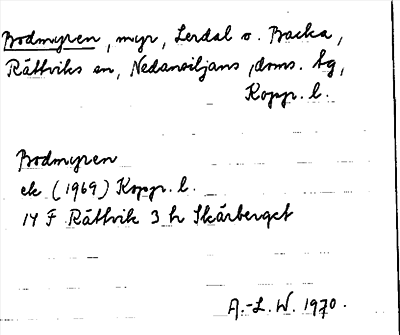 Bodmyren, myr, Lerdal o. Backa,
Rättviks sn, Nedansiljans doms. tg,
Kopp. l.
Bodmyren
ek (1969) Kopp. l.
14 F Rättvik 3 h Skärberget
A.-L. W. 1970.